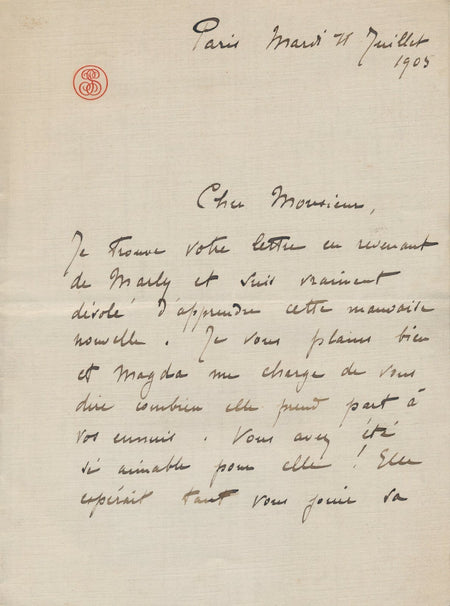 Paris Mardi 11 Juillet
1905
Cher Monsieur,
Je trouve votre lettre en revenant
de Marly et suis vraiment
désolé d'apprendre cette mauvaise
nouvelle. Je vous plains bien
et Magda me charge de vous
dire combien elle prend part à
vos ennuis. Vous avez été
si aimable pour elle! Elle
espérait tant vous jouer sa